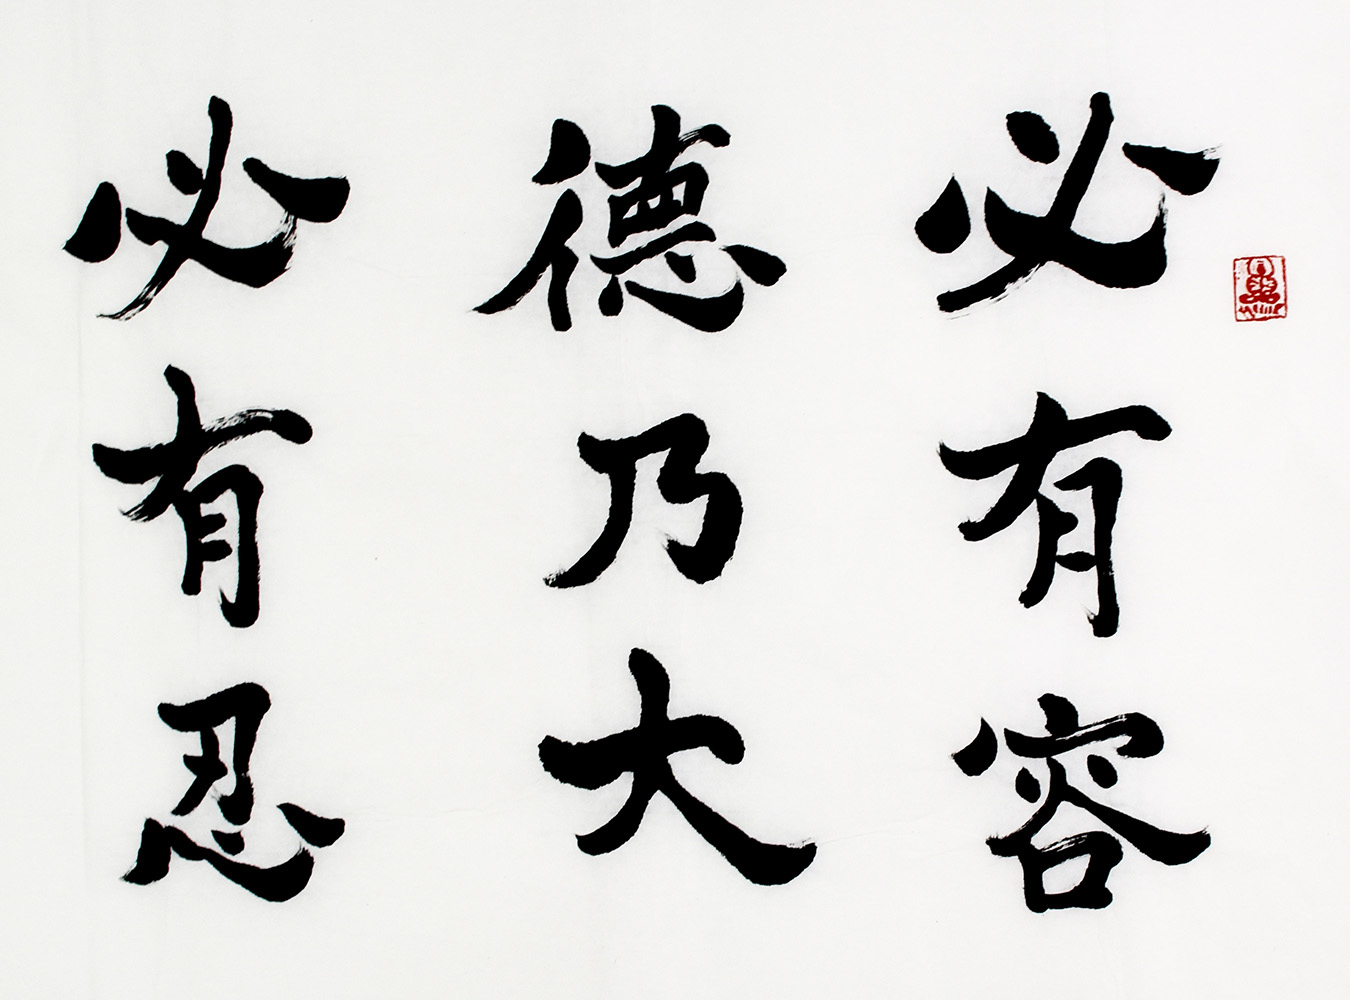 必有容
德乃大
必有忍